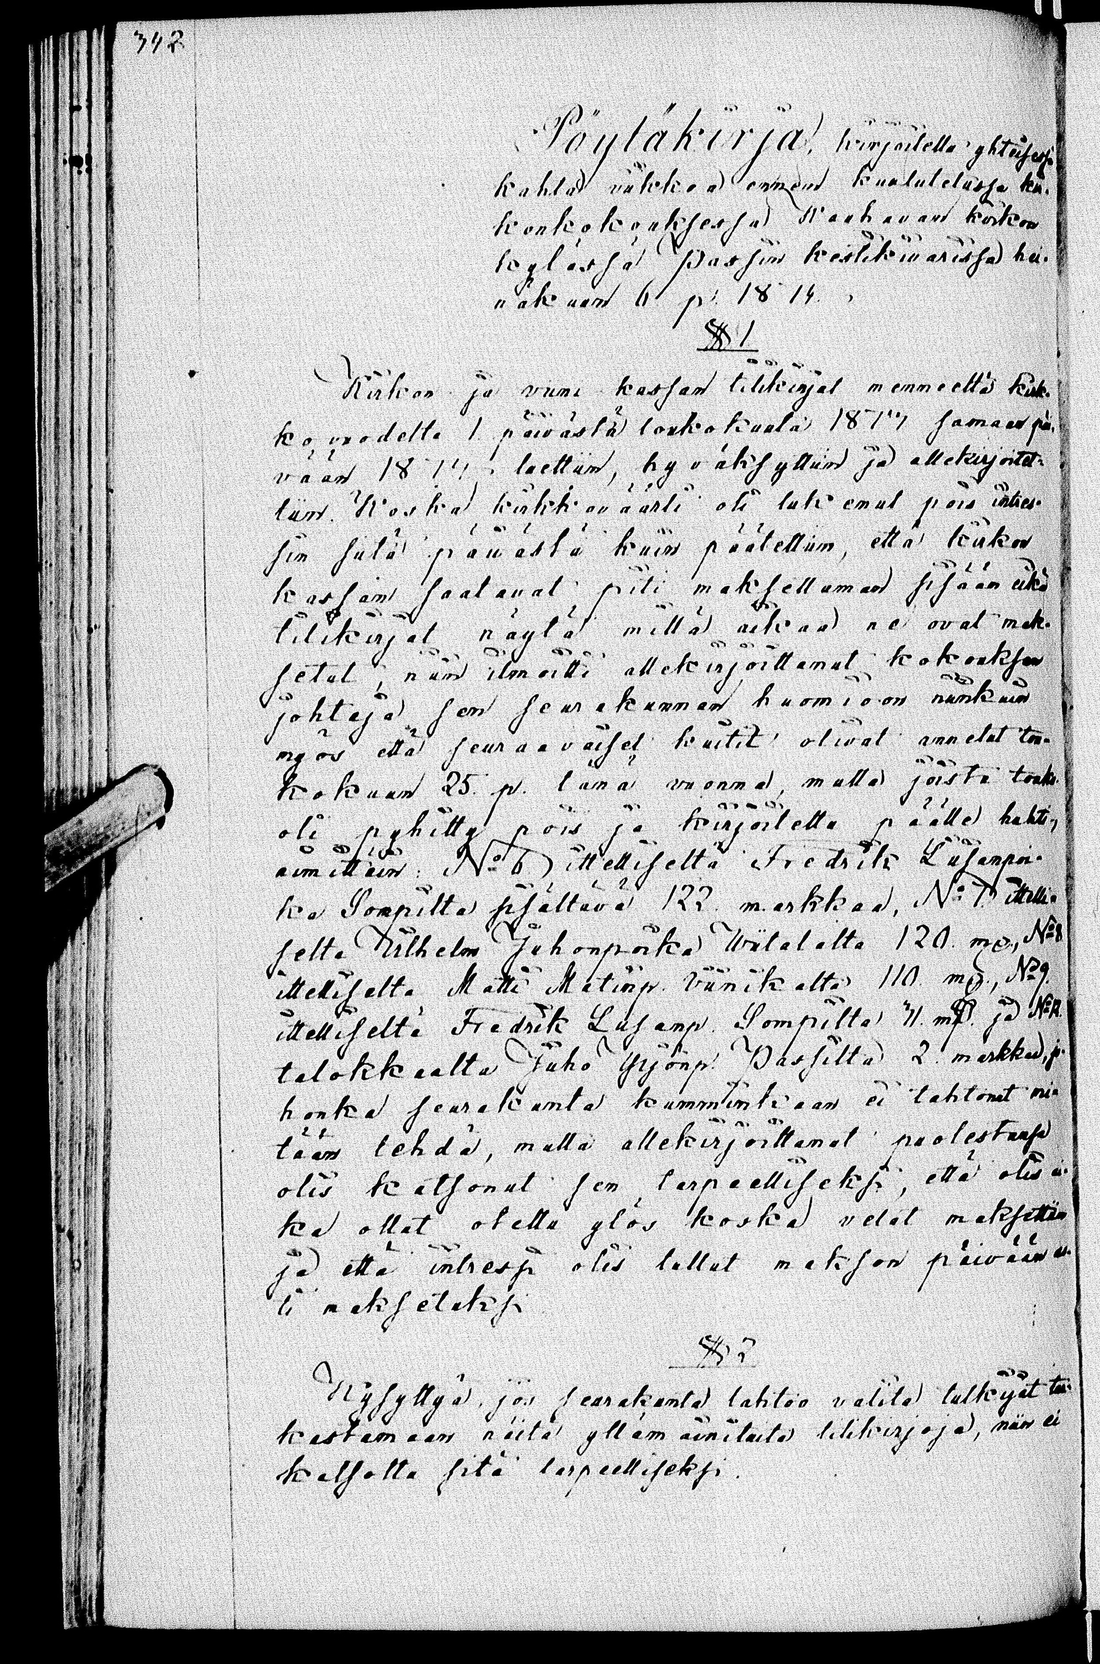 342
Pöytäkirja, kirjoitettu yhteisessä
kahta viikkoa ennen kuulutetussa kir-
konkokouksessa Kauhavan kirkon
kylässä Passin kestikivarissa hei-
näkuun 6 p. 1874.
§ 1
Kirkon ja viini kassan tilikirjat menneeltä kirk-
ko vuodelta 1 päivästä toukokuuta 18 samaan päi-
vään 1874, luettiin, hyväksyttiin ja allekirjoitet-
tiin. Koska kirkkoväärti oli lukenut pois intres-
sin siitä päivästä kuin päätettiin, että kirkon
kassain saatavat piti maksettaman sisään eikä
tilikirjat näytä millä aikaa ne ovat mak-
setut, niin ilmoitti allekirjoittanut kokouksen
johtaja sen seurakunnan huomioon niinkuin
myös että seuraavaiset kuitit olivat annetut tou-
kokuun 25. p. tänä vuonna, mutta joista touko
oli pyhitty pois ja kirjoitettu päälle huhti-,
nimittäin: No 6 ittelliseltä Fredrik Liisanpoi-
ka Sompilta sisältävä 122 markkaa, No 7 ittelli-
seltä Wilhelm Juhonpoika Wiitalalta 120. m, No 8
ittelliseltä Matti Matinp. Viinikalta 110. m, No 9.
ittelliseltä Fredrik Liisanp. Sompilta 71. m. ja No 12.
talokkaalta Juho Yrjönp. Passilta 2. markkaa, jo-
honka seurakunta kumminkaan ei tahtonut mi-
tään tehdä, mutta allekirjoittanut puolestansa
olis katsonut sen tarpeelliseksi, että olis ai-
ka ollut otettu ylös koska velat maksettiin
ja että intressi olis tullut makson päivään as-
ti maksetuksi
§ 2
Kysyttyä, jos seurakunta tahtoo valita tutkijat tar-
kastamaan näitä ylläm ainituita tilikirjoja, niin ei
katsottu sitä tarpeelliseksi.